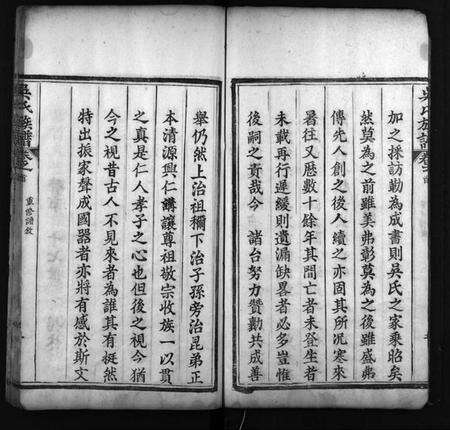 加之採訪勒為成書則吳氏之家乘昭矣
然莫為之前雖美弗彰莫為之後雖盛弗
傳先人創之後人續之亦固其所況寒來
暑往又歷數十餘年其間亡者未登生者
未載再行遲緩則遺漏缺畧者必多豈惟
後嗣之責哉今 諸台努力贊勷共成善
舉仍然上治祖禰下治子孫旁治昆弟正
本清源興仁講讓尊祖敬宗收族一以貫
之真是仁人孝子之心也但後之視今猶
今之視昔古人不見來者為誰其有挺然
特出振家聲成國器者亦將有感於斯文
吳氏族譜卷之首
重修譜敘